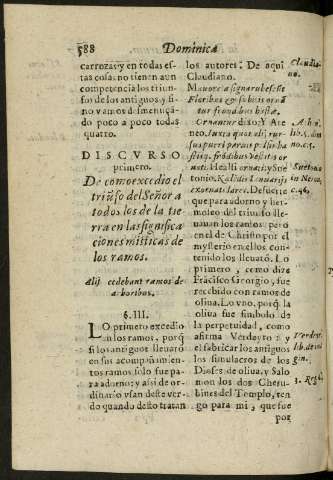 588
Dominica
carrozas: y en todas es-
tas cosas no tienen aun
competencia los triun-
fos de los antiguos, y si-
no vamos desmenuçã-
do poco a poco todas
quatro.
DISCVRSO
primero.
De como excedio el
triũfo del Señor a
todos los de la tie-
rra en las significa
ciones misticas de
los ramos.
Alij cædebant ramos de
arboribus.
§. III.
LO primero excedio
en los ramos, porq̃
si los antiguos lleuarõ
en sus acompañamien-
tos ramos solo fue pa-
ra adorno: y assi de or-
dinario vsan deste ver-
bo quando desto tratan
los autores: De aqui
Claudiano.
Floribus
Ornatur dixo: Y Ate
neo. Iuxta quos alij rur-
sus pueri
ornati: y Sue
tonio. Kalidis Iuuatis
De suerte
que para adorno y her-
moseo del triunfo lle-
uauan los ramos: pero
en el de Christo por el
mysterio en ellos con-
tenido los lleuarõ. Lo
primero, como dize
Frãcisco Georgio, fue
recebido con ramos de
oliua. Lo vno, porq̃ la
oliua fue simbolo de
la perpetuidad, como
afirma Verdeyro: y
el fabricar los antiguos
los simulacros de los
Dioses de oliua, y Salo
mon los dos Cheru-
bines del Templo, ten
go para mi, que fue
por
Claudia-
no.
lib. 5. dim
no. c. 5.
Suetonio
in Nero.
c. 46.
Verdeyr.
lib. de
gin.
3. Reg. 6.